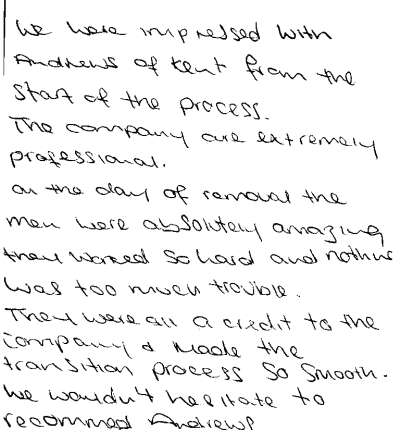 We were impressed with
Andrews of Kent from the
start of the process.
The company are extremely
professional.
on the day of removal the
men were absolutely amazing
they worked so hard and nothing
was too much trouble.
They were all a credit to the
company & made the
transition process so smooth.
We wouldn't hesitate to
recommed Andrews